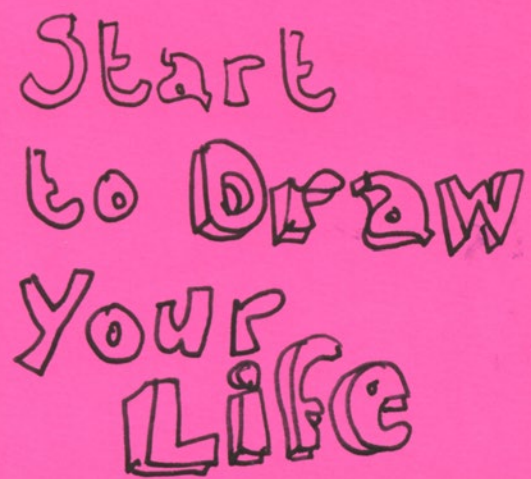 Start
to Draw
Your
Life